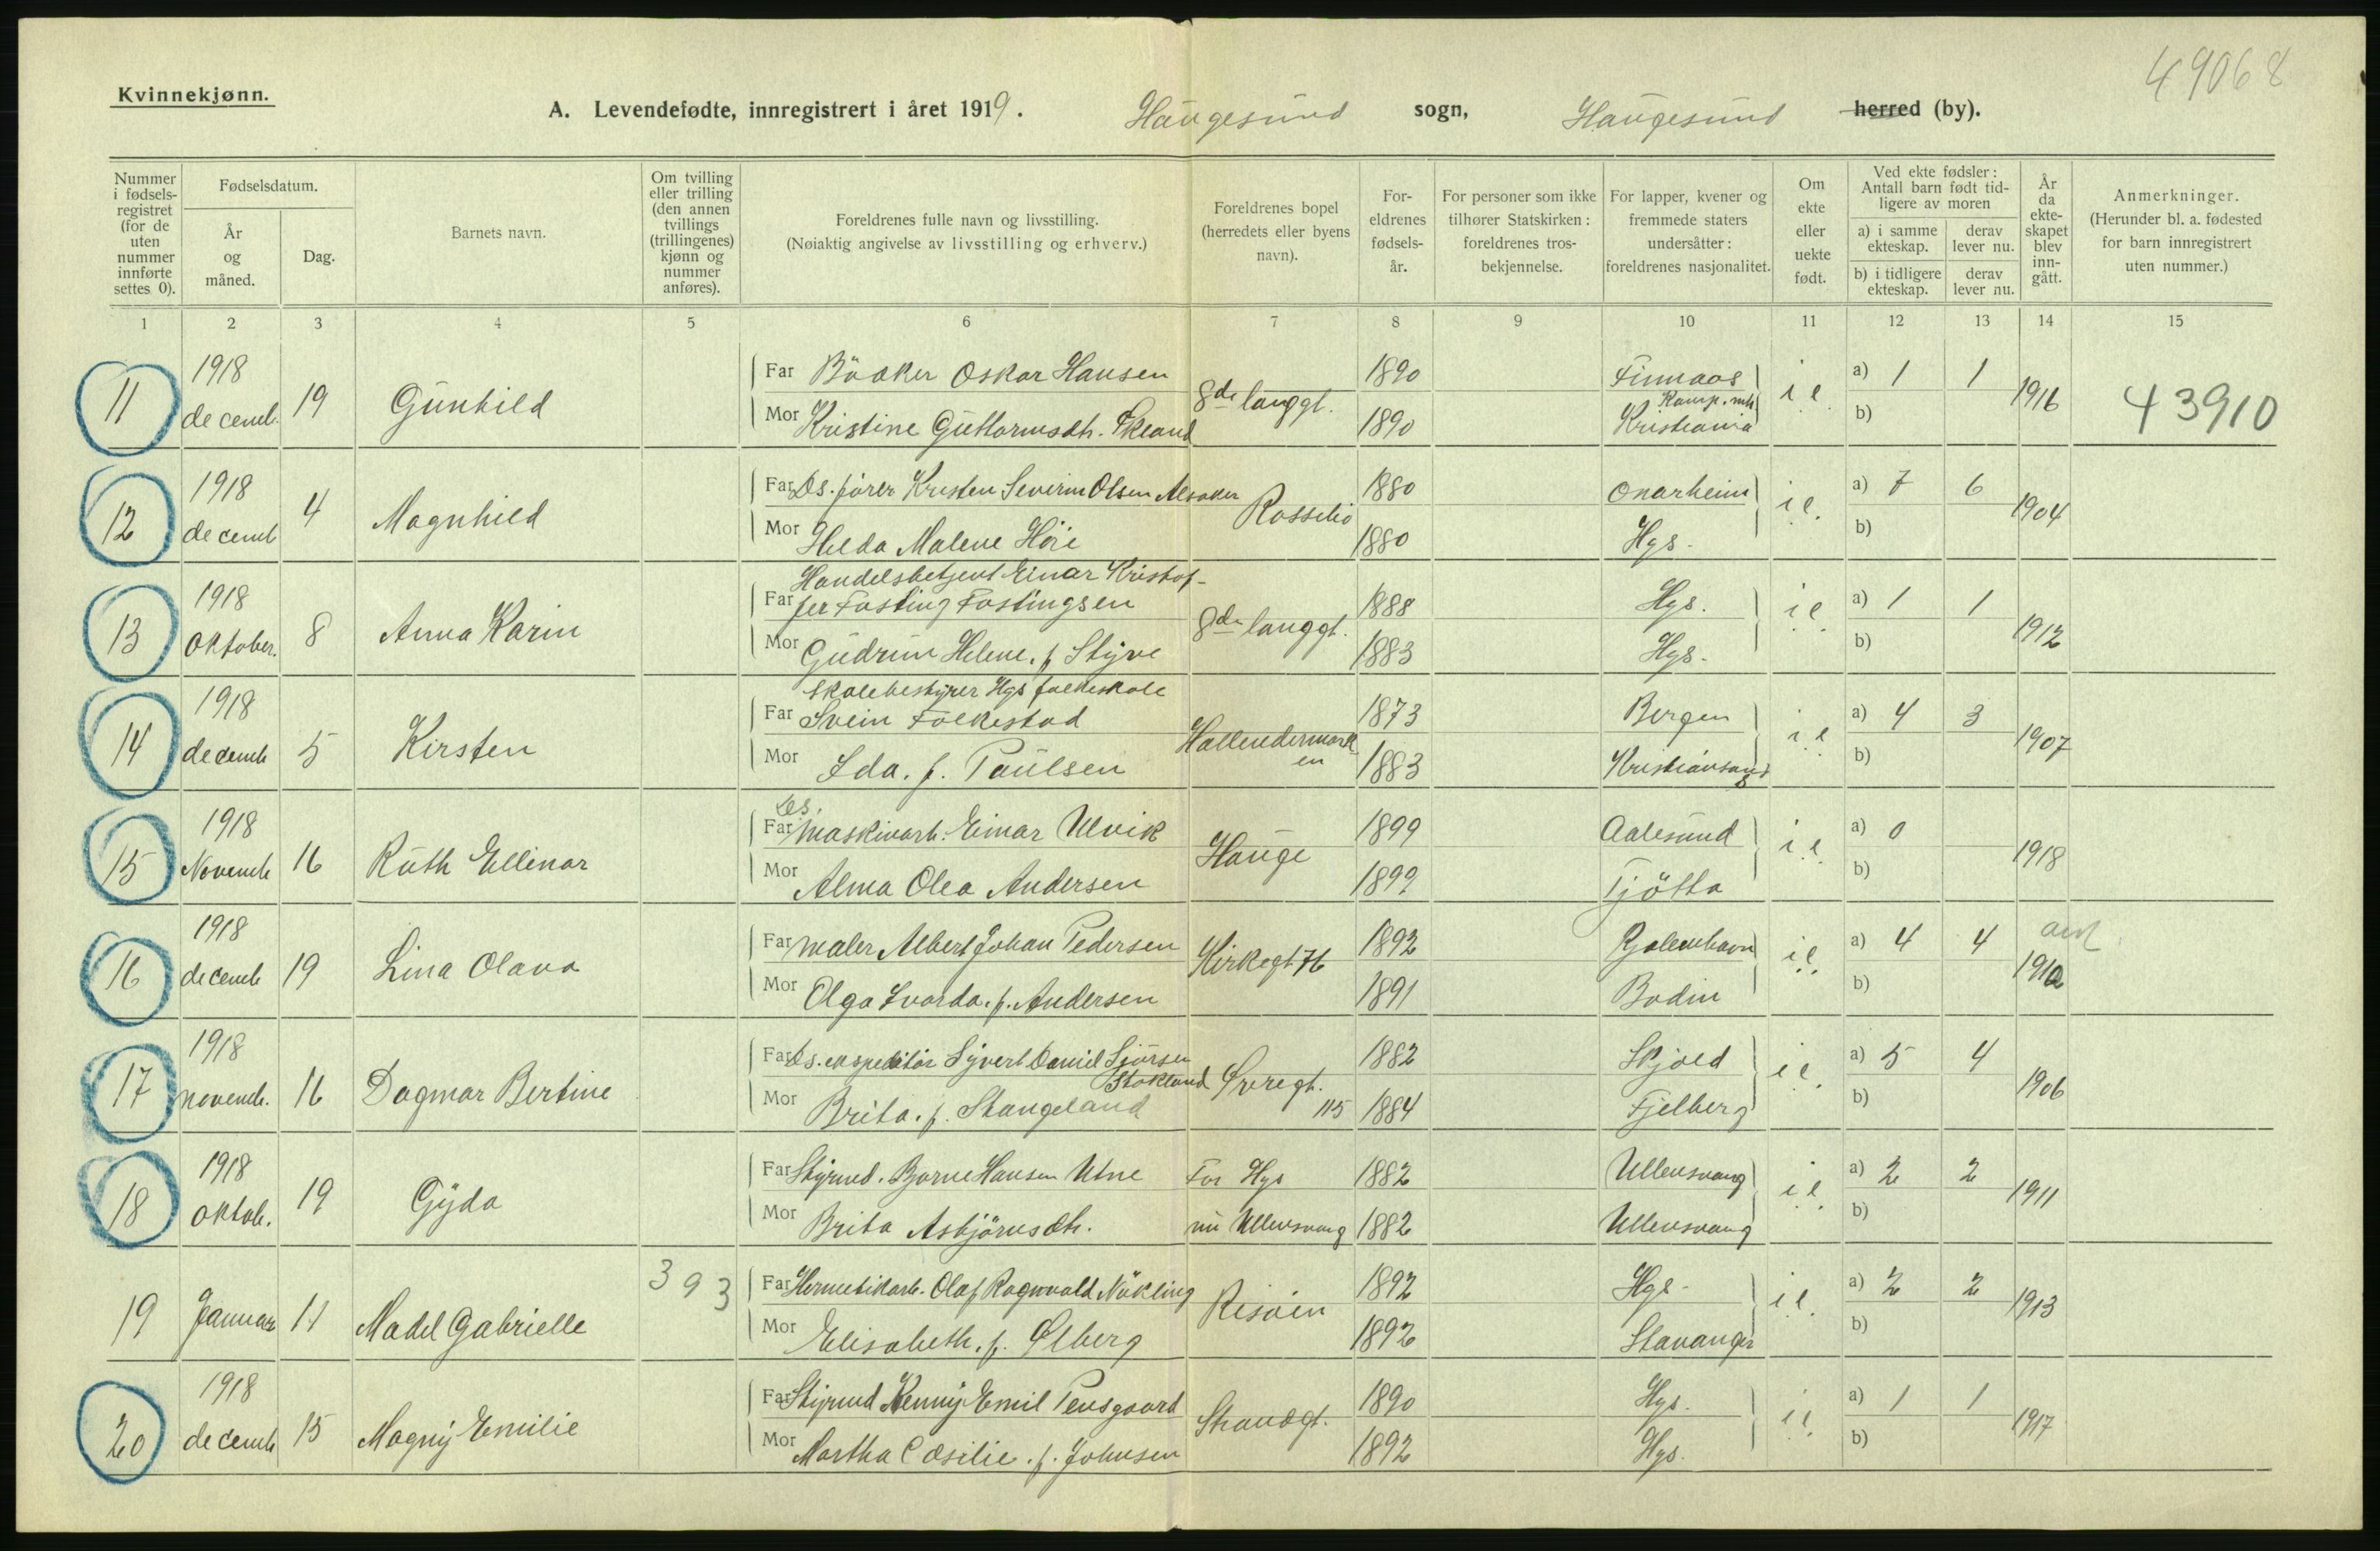 49068
Kvinnekjønn.
A. Levendefødte, innregistrert i året 1919. Haugesund sogn, Haugesund herred (by).
Nummer i fødselsregistret (for de uten nummer innførte settes 0).
Fødselsdatum.
År og måned.
Dag.
Barnets navn.
Om tvilling eller trilling (den annen tvillings (trillingenes) kjønn og nummer anføres).
Foreldrenes fulle navn og livsstilling.
(Nøiaktig angivelse av livsstilling og erhverv.)
Foreldrenes bopel (herredets eller byens navn).
Foreldrenes fødselsår.
For personer som ikke tilhører Statskirken: foreldrenes trosbekjennelse.
For lapper, kvener og fremmede staters undersåtter: foreldrenes nasjonalitet.
Om ekte eller uekte født.
Ved ekte fødsler: Antall barn født tidligere av moren
a) i samme ekteskap.
derav lever nu.
b) i tidligere ekteskap.
derav lever nu.
År da ekteskapet blev inngått.
Anmerkninger.
(Herunder bl. a. fødested for barn innregistrert uten nummer.)
1 2 3 4 5 6 7 8 9 10 11 12 13 14 15
11 1918 decemb. 19 Gunhild Far Oskar Hansen 8de langgt. 1890 Finnaas i e. a) 1 1 1916 43910
Mor Kristine Guttormsdtr. 1890 Kristiania b)
12 1918 decemb 4 Magnhild Far Ds. fører Kristen Severin Olsen Alsaker 1880 Onarheim i e. a) 7 6 1904
Mor Hilda Malene 1880 Hgs. b)
13 1918 Oktober. 8 Anna Karin Handelsbetjent Einar Kristof-
Far fer Fasting Fastingsen 8de langgt. 1888 Hgs. i e. a) 1 1 1912
Mor Gudrun Helene. f. Styve 1883 Hgs. b)
14 1918 decemb 5 Kirsten Skolebestyrer Hgs folkeskole
Far Svein Folkestad 1873 Bergen i e a) 4 3 1907
Mor Ida. f. Paulsen 1883 Kristiansand S b)
15 1918 Novemb 16 Ruth Ellinor Ds.
Far maskinarb. Einar Ulvik Hauge 1899 Aalesund i e. a) 0 1918
Mor Alma Olea Andersen 1899 Tjötta b)
16 1918 decemb 19 Lina Olava Far maler Albert Johan Pedersen Kirkegt 76 1892 i e. a) 4 4
Mor Olga . f. Andersen 1891 Bodin b)
17 1918 novemb. 16 Dagmar Bertine Far Ds. expeditör Syvert Daniel Sjursen Stokland Øvregt. 115 1882 Skjold i e. a) 5 4 1906
Mor Brita. f. Stangeland 1884 Fjelberg b)
18 1918 oktob. 19 Gyda Far Styrmd. Bjarne Hansen Utne For Hgs 1882 Ullensvang i e. a) 2 2 1911
Mor Brita Asbjørnsdtr. nu Ullensvang 1882 Ullensvang b)
19 Januar 11 Gabrielle 393 Far Hermetikarb. Olaf Ragnvald Nökling Risøen 1892 Hgs. i e. a) 2 2 1913
Mor Elisabeth. f. Ølberg 1892 Stavanger b)
20 1918 decemb 15 Magny Emilie Far Styrmd Emil Strandgt. 1890 Hgs. i e. a) 1 1 1917
Mor Martha . f. Johnsen 1892 Hgs. b)